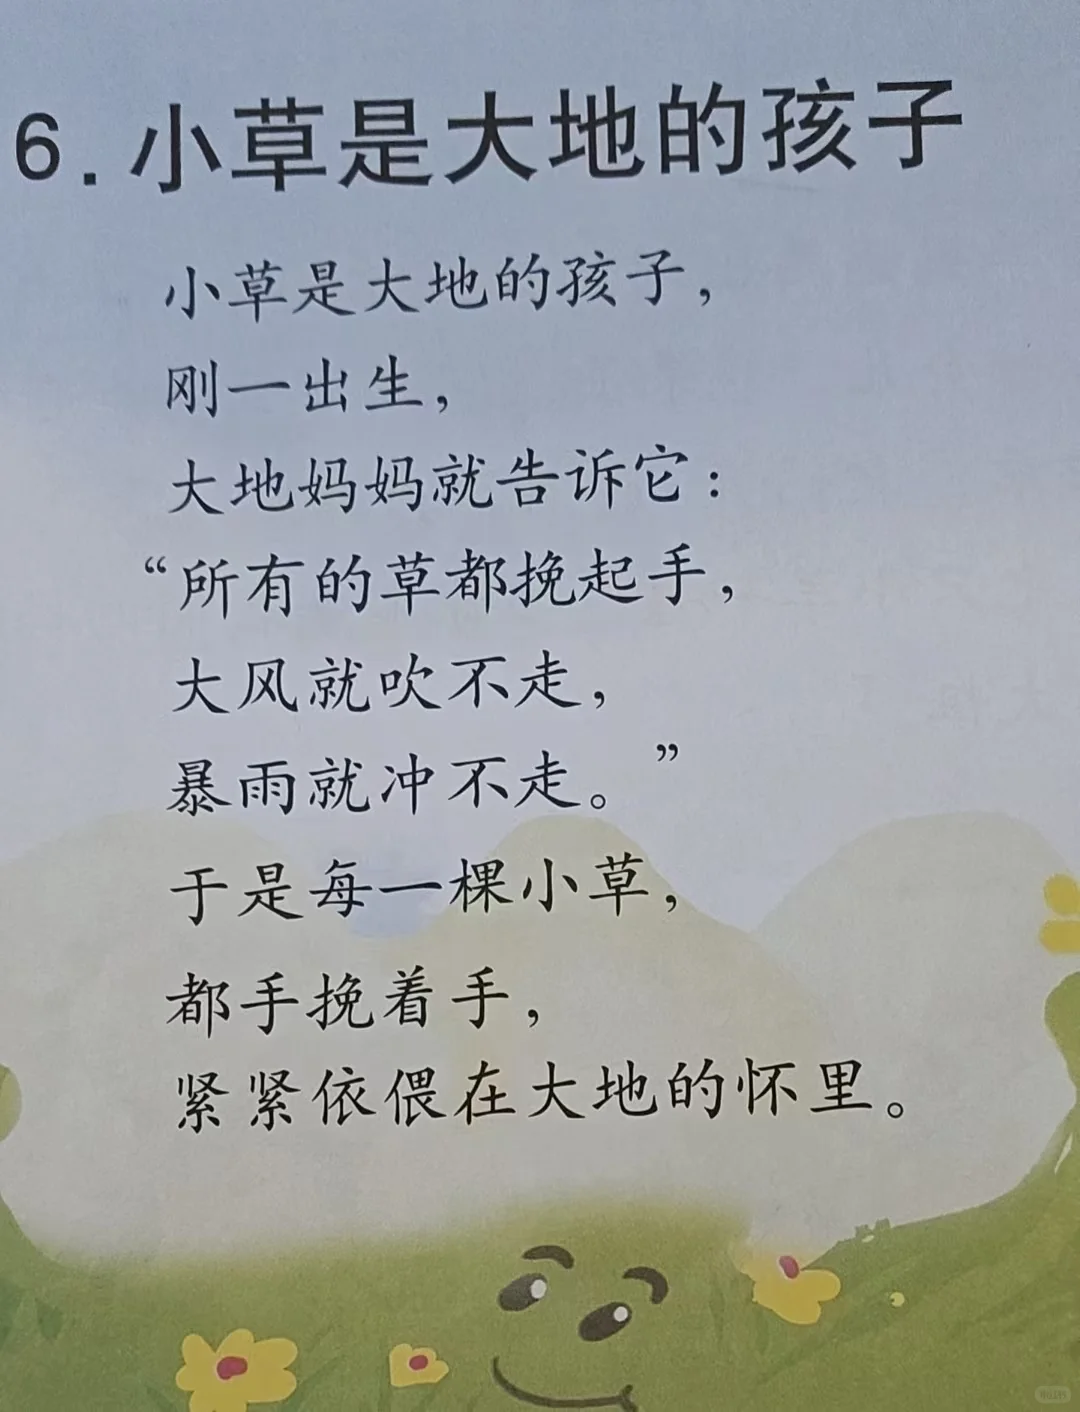 6.小草是大地的孩子
小草是大地的孩子，
刚一出生，
大地妈妈就告诉它：
“所有的草都挽起手，
大风就吹不走，
暴雨就冲不走。”
于是每一棵小草，
都手挽着手，
紧紧依偎在大地的怀里。